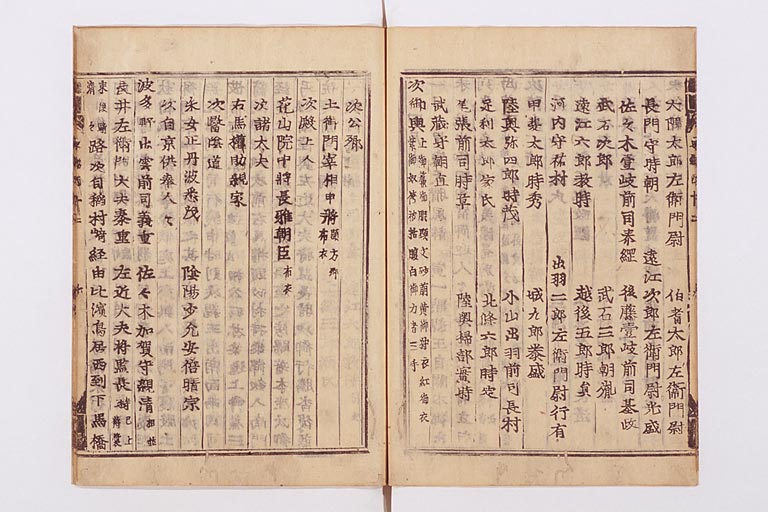 大隅太郎左衛門尉 伯耆太郎左衛門尉
長門守時朝 遠江次郎左衛門尉光盛
佐々木壹岐前司泰經 後藤壹岐前司基政
武石次郎 武石三郎朝胤
遠江六郎教時 越後五郎時員
河内守祐村 出羽二郎左衛門尉行有
甲斐太郎時秀 城九郎泰盛
陸奥弥四郎時茂 小山出羽前司長村
足利太郎家氏 北條六郎時定
尾張前司時章 陸奥掃部助實時
武藏守朝直
次御輿
次公卿
土御門宰相中將 顕方卿 布衣
次殿上人
花山院中將長雅朝臣 布衣
次諸大夫
右馬權助親家
次醫陰道
采女正丹波忠茂 陰陽少允安倍晴宗
次自京供奉人々
波多野出雲前司義重 佐々木加賀守親清
長井左衛門大夫泰重 左近大夫將監長時 已上
路次自稲村崎経由比濱鳥居西到下馬橋